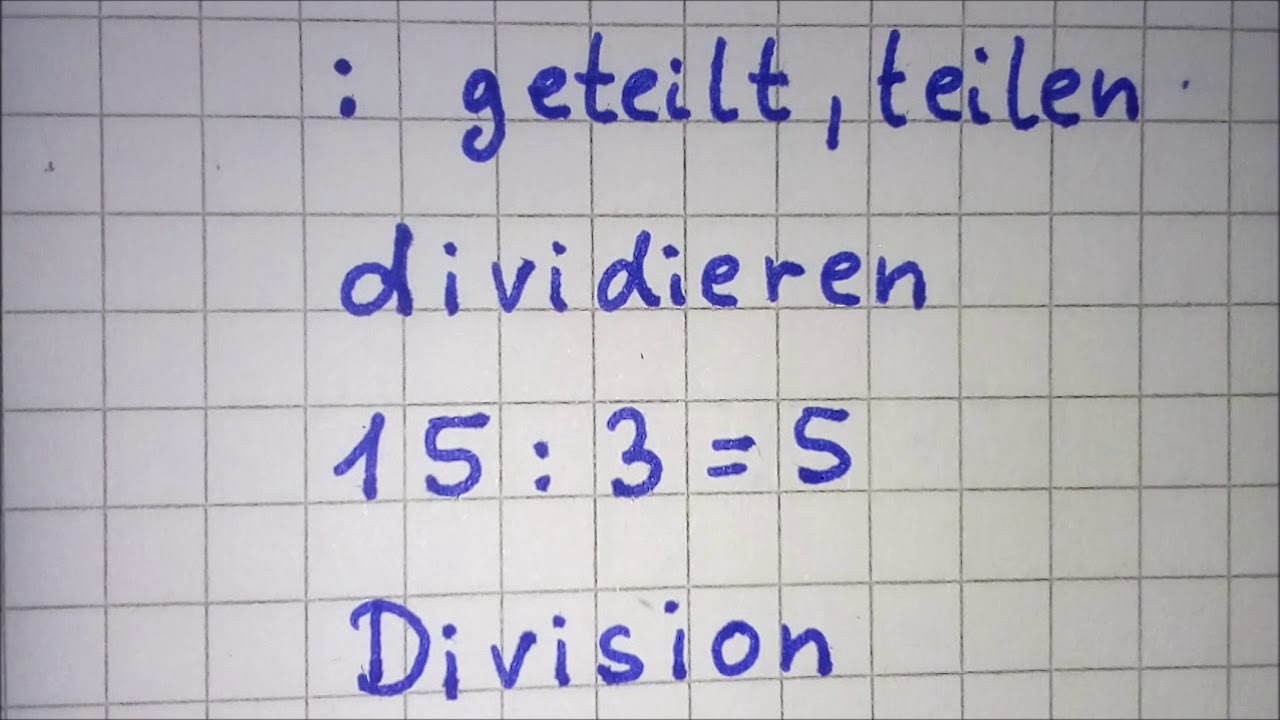 : geteilt, teilen
dividieren
15 : 3 = 5
Division